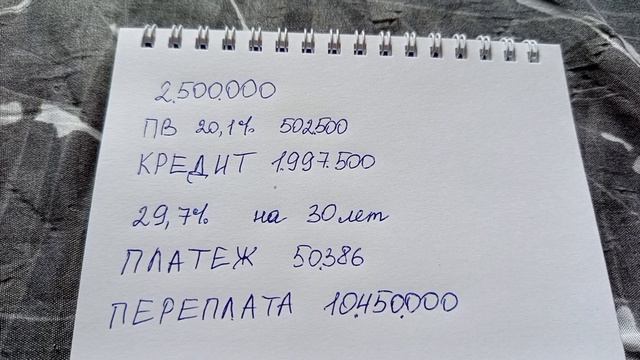 2.500.000
ПВ 20,1% 502.500
КРЕДИТ 1.997.500
29,7% на 30 лет
ПЛАТЕЖ 50.386
ПЕРЕПЛАТА 10.450.000